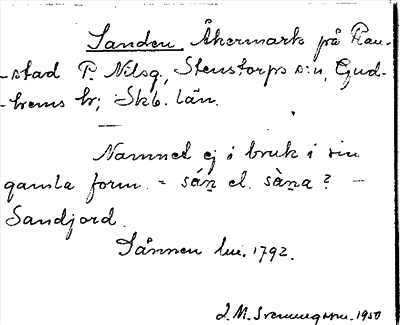 Sanden, Åkermark på Ran-
-stad P. Nilsg., Stenstorps s:n, Gud-
-hems hr; Skb. län.
—
Namnet ej i bruk i sin
gamla form. = sán el. sàna? —
Sandjord.
Sånnen lm. 1792.
J. M. Svenningsson. 1950